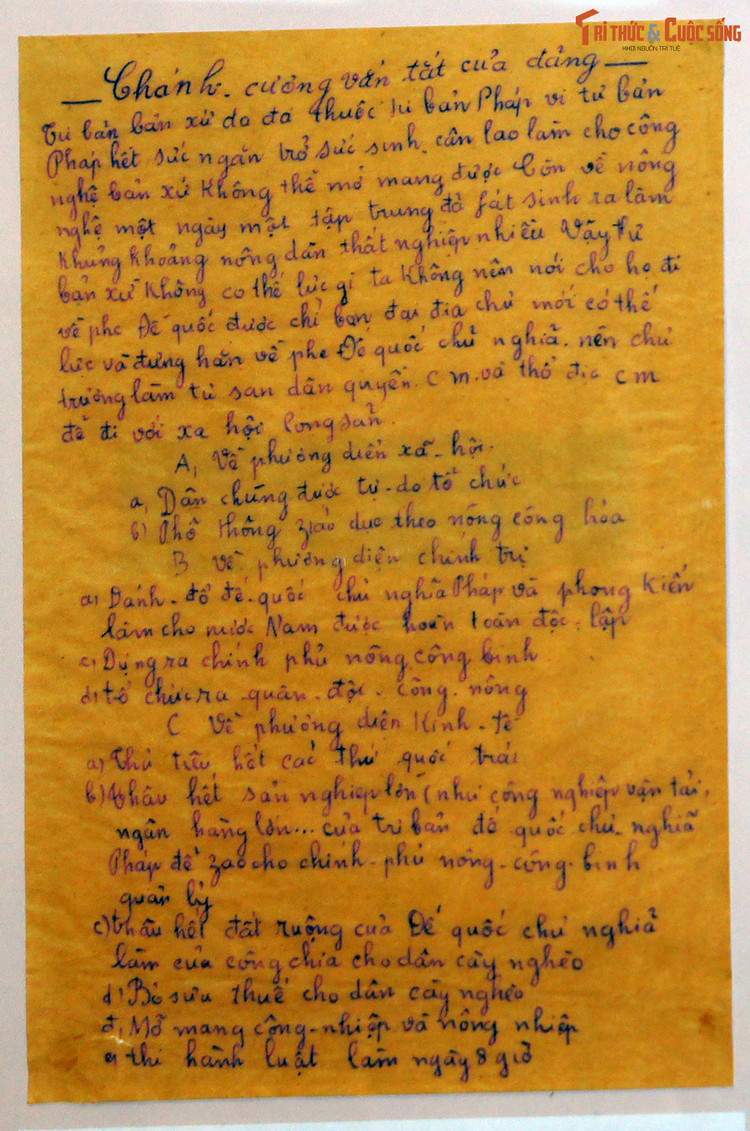 TRI THỨC & CUỘC SỐNG
KHƠI NGUỒN TRI TUỆ
— Chánh - cương vắn tắt của đảng —
Tư bản bản xứ do đá thuộc tư bản Pháp vì tư bản
Pháp hết sức ngăn trở sức sinh cần lao làm cho công
nghệ bản xứ không thể mở mang được Còn về nông
nghệ một ngày một tập trung đã fát sinh ra lắm
khủng khoảng nông dân thất nghiệp nhiều Vậy tư
bản xứ không có thế lực gì ta không nên nói cho họ đi
về phe Đế quốc được chỉ bọn đại địa chủ mới có thế
lực và đứng hẳn về phe Đế quốc chủ nghĩa. nên chủ
trương làm tư sản dân quyền. C m. và thổ địa c m
để đi với xa hội cộng sản.
A, Về phương diện xã - hội.
a, Dân chúng được tự - do tổ chức
b) Phổ thông záo dục theo nông công hóa
B Về phương diện chính trị
a) Đánh - đổ đế - quốc chủ nghĩa Pháp và phong Kiến
làm cho nước Nam được hoàn toàn độc - lập
c) Dựng ra chính phủ nông công binh
d) tổ chức ra quân - đội - công - nông
C Về phương diện Kinh - tế
a) Thủ tiêu hết các thứ quốc trái
b) thâu hết sản nghiệp lớn (như công nghiệp vận tải,
ngân hàng lớn... của tư bản đế quốc chủ - nghĩa
Pháp để zao cho chính - phủ nông - công - binh
quản lý
c) thâu hết đất ruộng của Đế quốc chủ nghĩa
làm của công chia cho dân cày nghèo
d) Bỏ sưu thuế cho dân cày nghèo
đ, Mở mang công - nhiệp và nông nhiệp
e) thi hành luật làm ngày 8 giờ